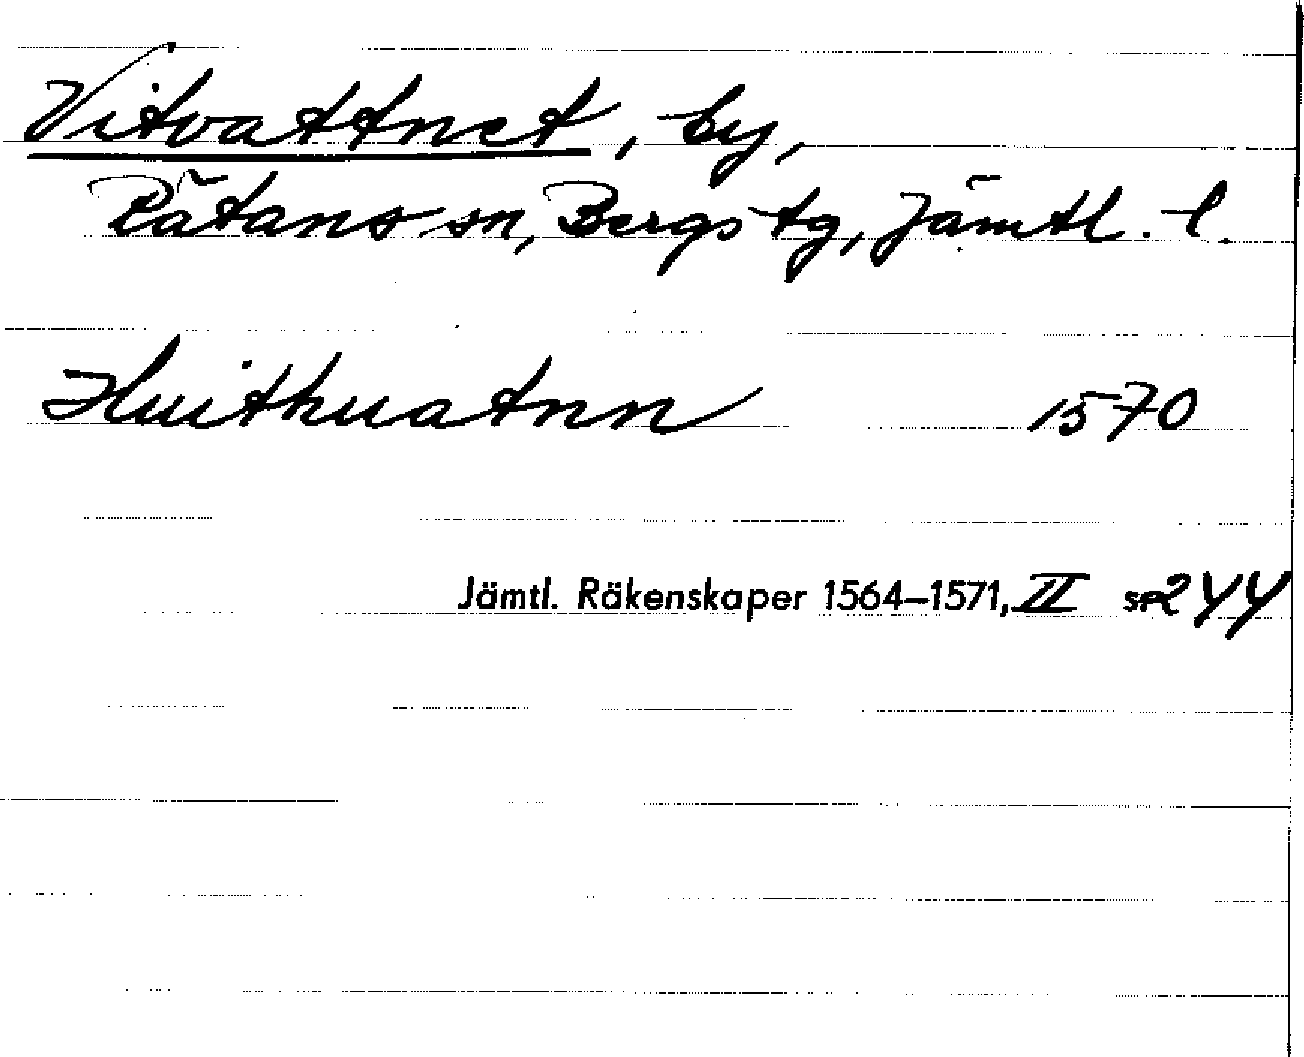 Vitvattnet, by,
Rätans sn, Bergs tg, Jämtl. l.
Huithuatnn 1570
Jämtl. Räkenskaper 1564–1571, II s. 244